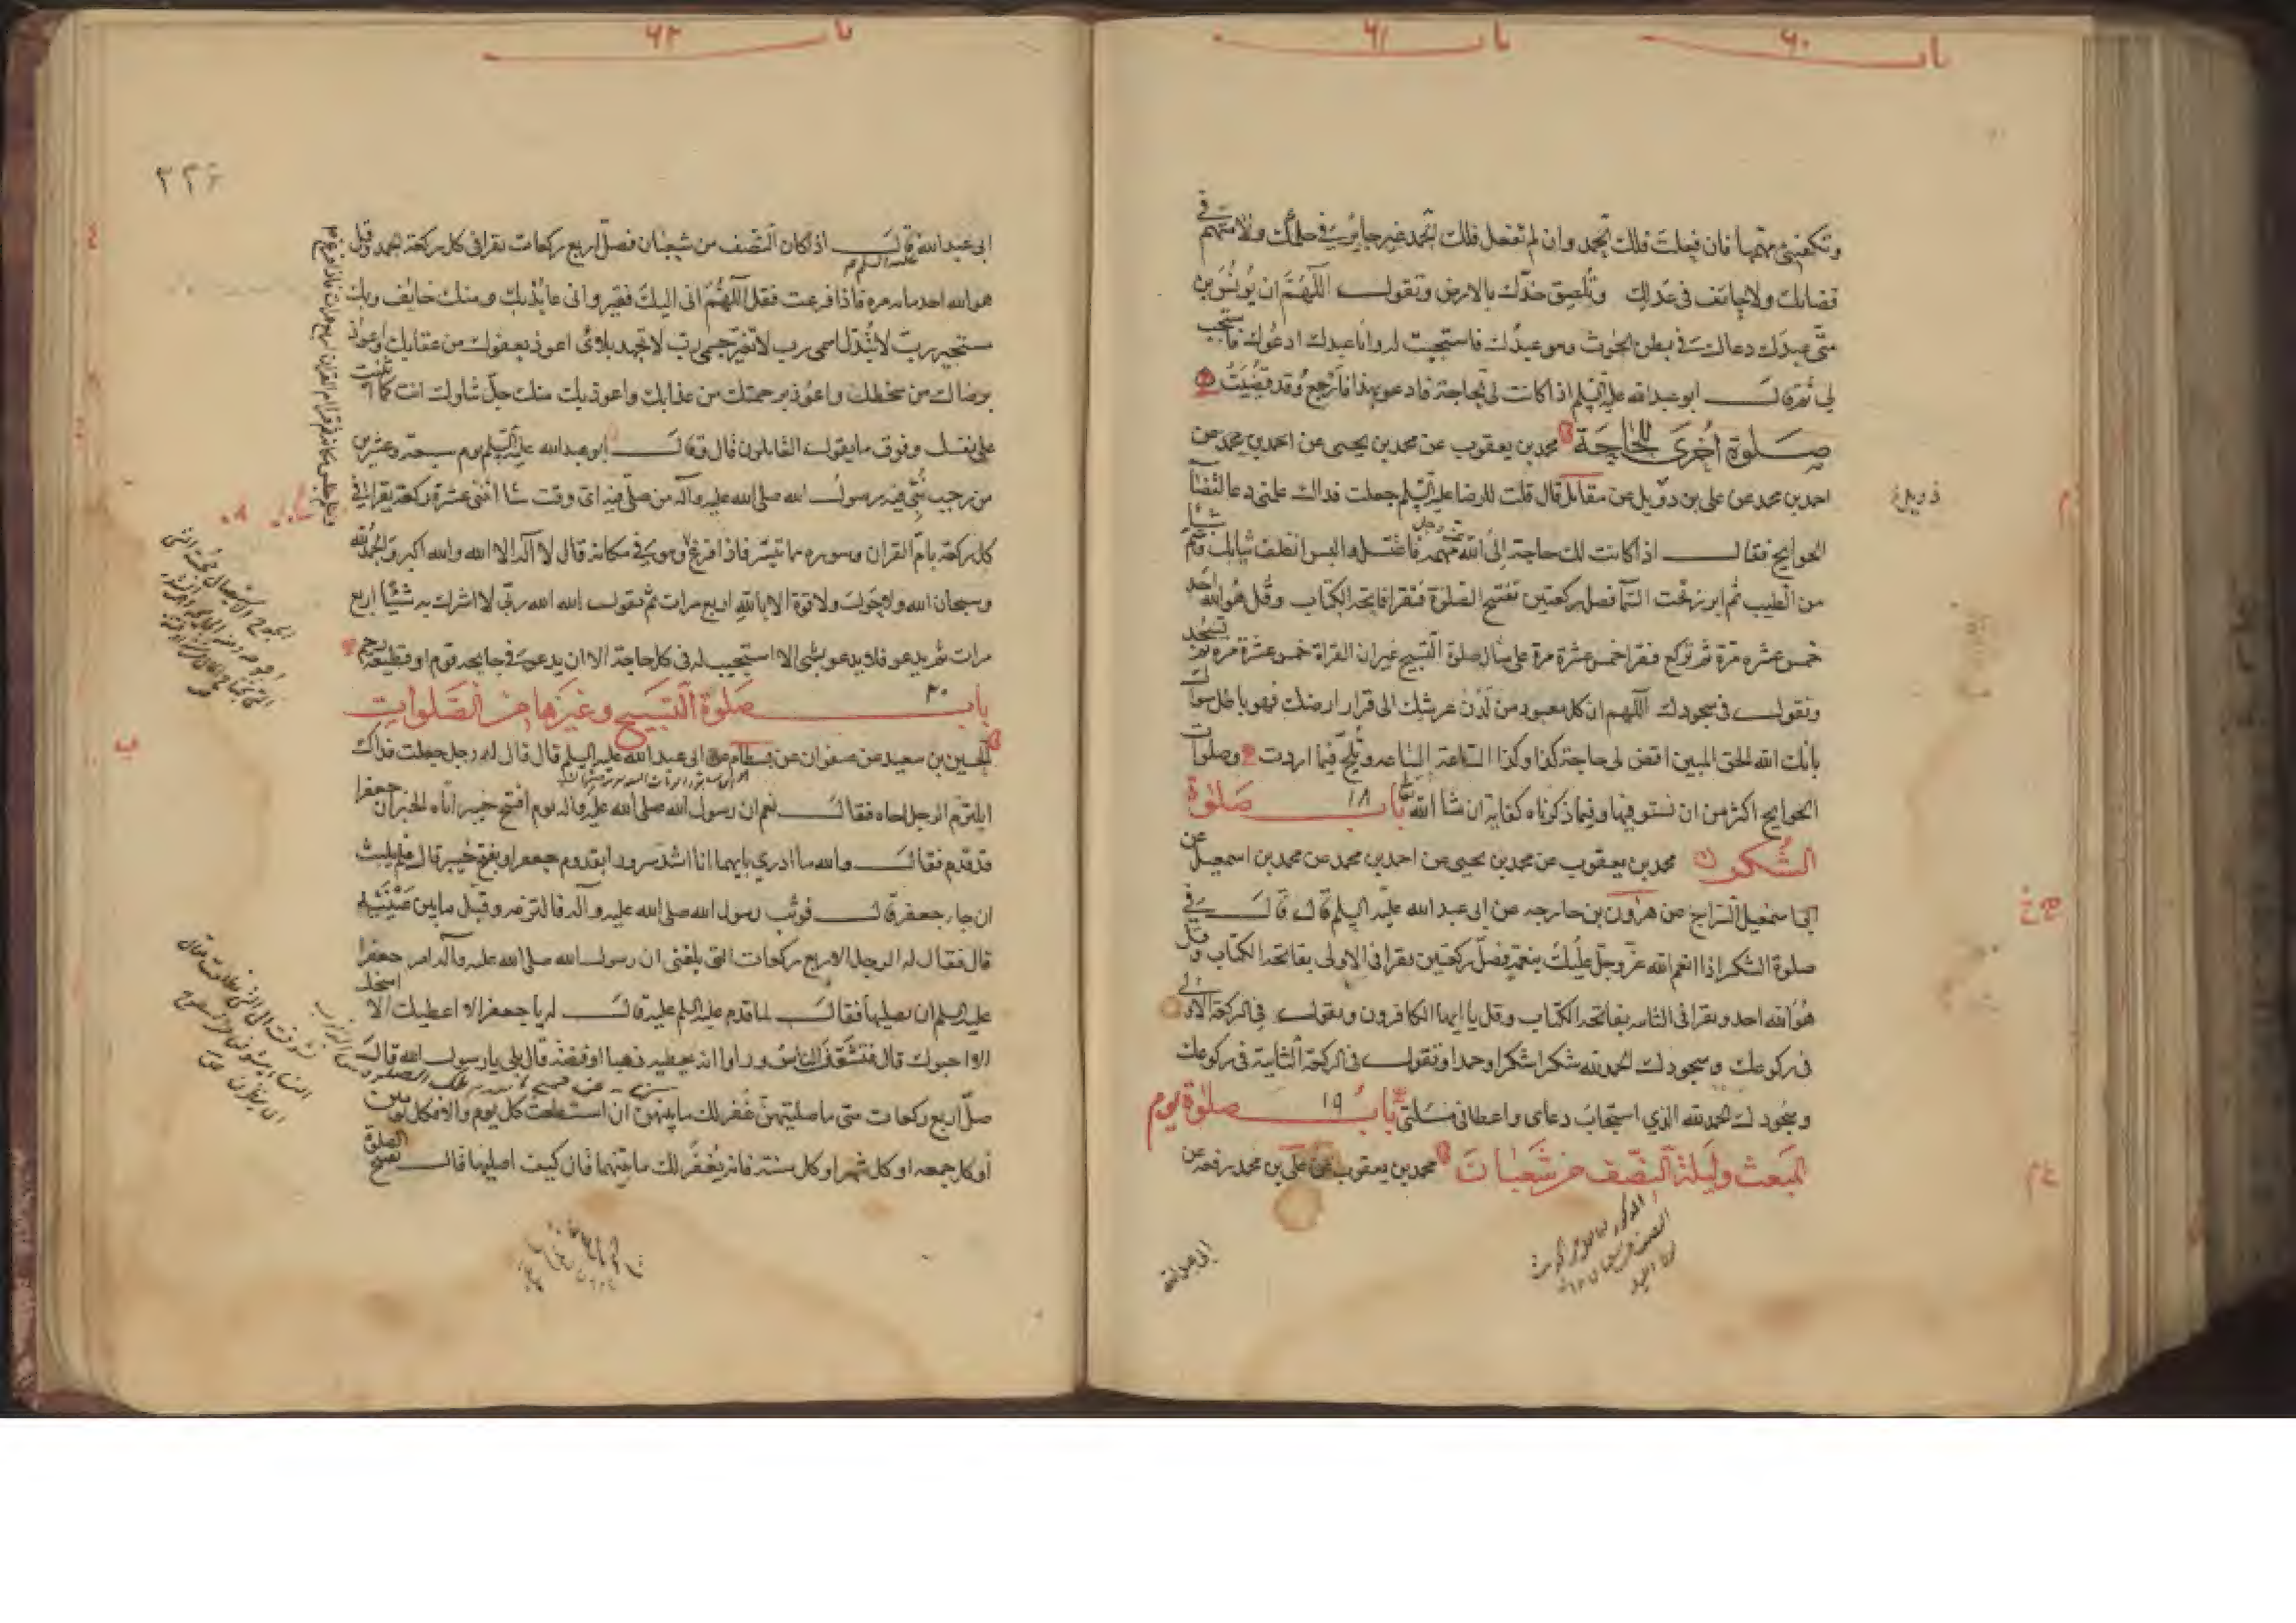 باب ۶۰
باب ۶۱
وتكفيني مهمها فان فعلت فلك الحمد وان لم تفعل فلك الحمد غير جاير في حكمك ولا متهم في
قضائك ولا حائف في عدلك وتلصق خدك بالارض وتقول اللهم ان يونس بن
متى عبدك دعاك في بطن الحوت وهو عبدك فاستجبت له وانا عبدك ادعوك فاستجب
لي ثم قال ابو عبد الله عليه السلم اذا كانت لي الحاجة فادعو بهذا فارجع وقد قضيت
صلوة اخرى للحاجة محمد بن يعقوب عن محمد بن يحيى عن احمد بن محمد عن
احمد بن محمد عن علي بن دويل عن مقاتل قال قلت للرضا عليه السلم جعلت فداك علمني دعا لقضآ
الحوايج فقال اذا كانت لك حاجة الى الله عز وجل مهمة فاغتسل والبس انظف ثيابك وشم شيئا
من الطيب ثم ابرز تحت السمآ فصل ركعتين تفتتح الصلوة فتقرا فاتحة الكتاب وقل هو الله احد
خمس عشره مرة ثم تركع فتقرا خمس عشرة مرة على مثال صلوة التسبيح غير ان القراة خمس عشرة مره ثم تسجد
وتقول في سجودك اللهم ان كل معبود من لدن عرشك الى قرار ارضك فهو باطل سواك
بانك الله الحق المبين اقض لي حاجة كذا وكذا الساعة الساعه وتلح فيما اردت وصلوات
الحوايج اكثر من ان نستوفيها وفيما ذكرناه كفاية ان شا الله تعالى باب ۱۸ صلوة
الشكر محمد بن يعقوب عن محمد بن يحيى عن احمد بن محمد عن محمد بن اسمعيل عن
ابي اسمعيل السراج عن هرون بن خارجه عن ابي عبد الله عليه السلم قال قال في
صلوة الشكر اذا انعم الله عز وجل عليك بنعمة فصل ركعتين تقرا في الاولى بفاتحة الكتاب وقل
هو الله احد وتقرا في الثانيه بفاتحة الكتاب وقل يا ايها الكافرون وتقول في الركعة الاولى
في ركوعك وسجودك الحمد لله شكرا شكرا وحمدا وتقول في الركعة الثانية في ركوعك
وسجودك الحمد لله الذي استجاب دعاى واعطاني مسلتي باب ۱۹ صلوة يوم
المبعث وليلة النصف من شعبان محمد بن يعقوب عن علي بن محمد رفعه عن
ابي عبد الله
باب ۶۲
۲۲۶
ابي عبد الله عليه السلم قال اذا كان النصف من شعبان فصل اربع ركعات تقرا في كل ركعة الحمد وقل
هو الله احد مايه مره فاذا فرغت فقل اللهم اني اليك فقير واني عايذ بك ومنك خايف وبك
مستجير رب لا تبدل اسمي رب لا تغير جسمي رب لا تجهد بلائي اعوذ بعفوك من عقابك واعوذ
برضاك من سخطك واعوذ برحمتك من عذابك واعوذ بك منك جل ثناوك انت كما اثنيت
على نفسك وفوق ما يقول القايلون قال وقال ابو عبد الله عليه السلم يوم سبعة وعشرين
من رجب نبئ فيه رسول الله صلى الله عليه وآله من صلى فيه اي وقت شا اثنتي عشرة ركعة يقرا في
كل ركعة بام القران وسوره ما تيسر فاذا فرغ وهو في مكانه قال لا اله الا الله والله اكبر والحمد لله
وسبحان الله ولا حول ولا قوة الا بالله اربع مرات ثم يقول الله الله ربي لا اشرك به شيئا اربع
مرات ثم يدعو فلا يدعو بشي الا استجيب له في كل حاجة الا ان يدعو في جايحه قوم او قطيعة رحم
باب ۲۰ صلوة التسبيح وغيرها من الصلوات
الحسين بن سعيد عن صفوان عن بسطام عن ابي عبد الله عليه السلم قال قال له رجل جعلت فداك
ايلتزم الرجل اخاه فقال نعم ان رسول الله صلى الله عليه واله يوم افتتح خيبر اتاه الخبر ان جعفرا
قد قدم فقال والله ما ادري بايهما انا اشد سرورا بقدوم جعفر او بفتح خيبر قال فلم يلبث
ان جاء جعفر قال فوثب رسول الله صلى الله عليه وآله فالتزمه وقبل ما بين عينيه
قال فقال له الرجل الاربع ركعات التي بلغني ان رسول الله صلى الله عليه وآله امر جعفرا
عليه السلم ان يصليها فقال لما قدم عليه السلم عليه قال له يا جعفر الا اعطيك الا امنحك
الا احبوك قال فتشوف الناس وراوا انه يعطيه ذهبا او فضة قال بلى يا رسول الله قال
صل اربع ركعات متى ما صليتهن غفر لك ما بينهن ان استطعت كل يوم والا فكل يومين
او كل جمعه او كل شهر او كل سنة فانه يغفر لك ما بينهما قال كيف اصليها قال تفتتح الصلوة